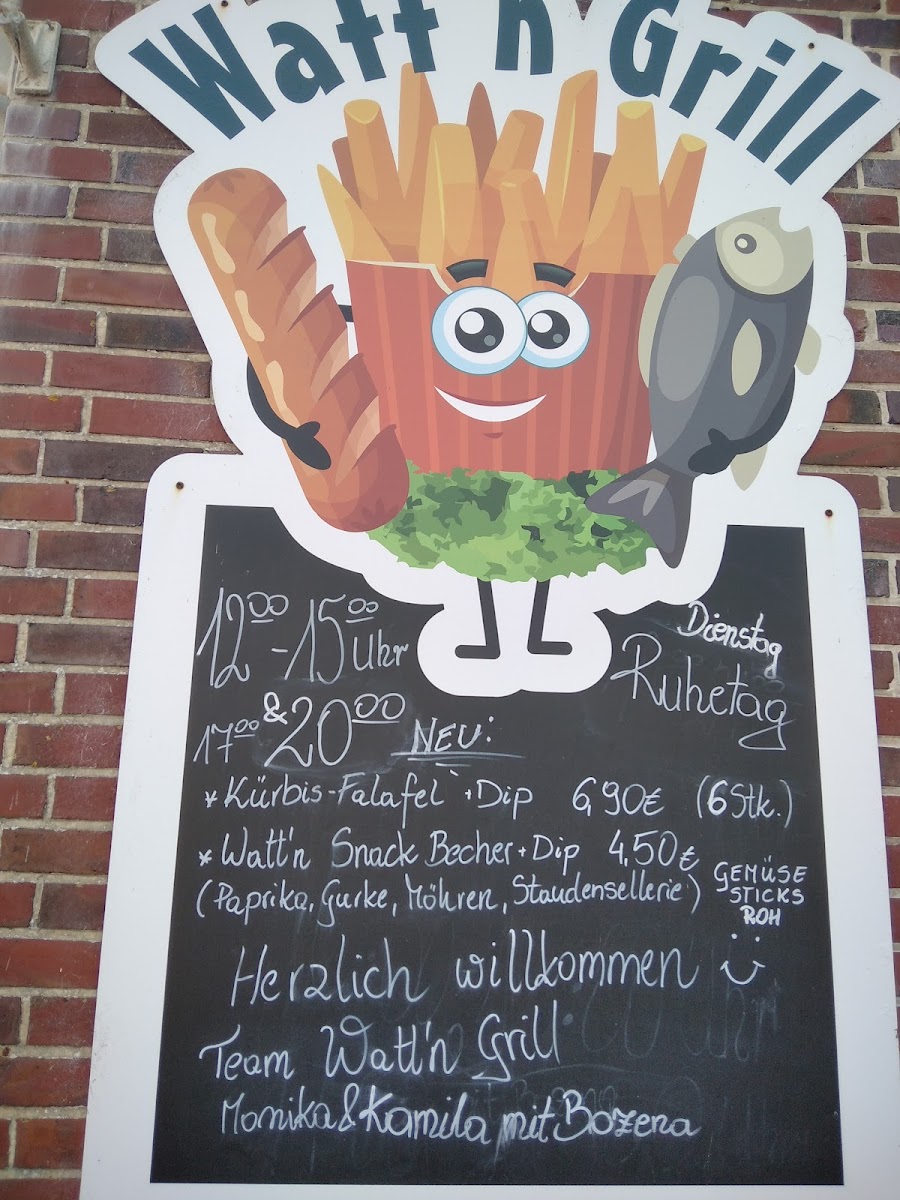 Watt'n Grill
12⁰⁰ - 15⁰⁰ Uhr
& 
17⁰⁰ 20⁰⁰
Dienstag
Ruhetag
NEU:
* Kürbis-Falafel + Dip 6,90€ (6 Stk.)
* Watt'n Snack Becher + Dip 4,50€
(Paprika, Gurke, Möhren, Staudensellerie)
GEMÜSE
STICKS
ROH
Herzlich willkommen
Team Watt'n Grill
Monika & Kamila mit Bozena